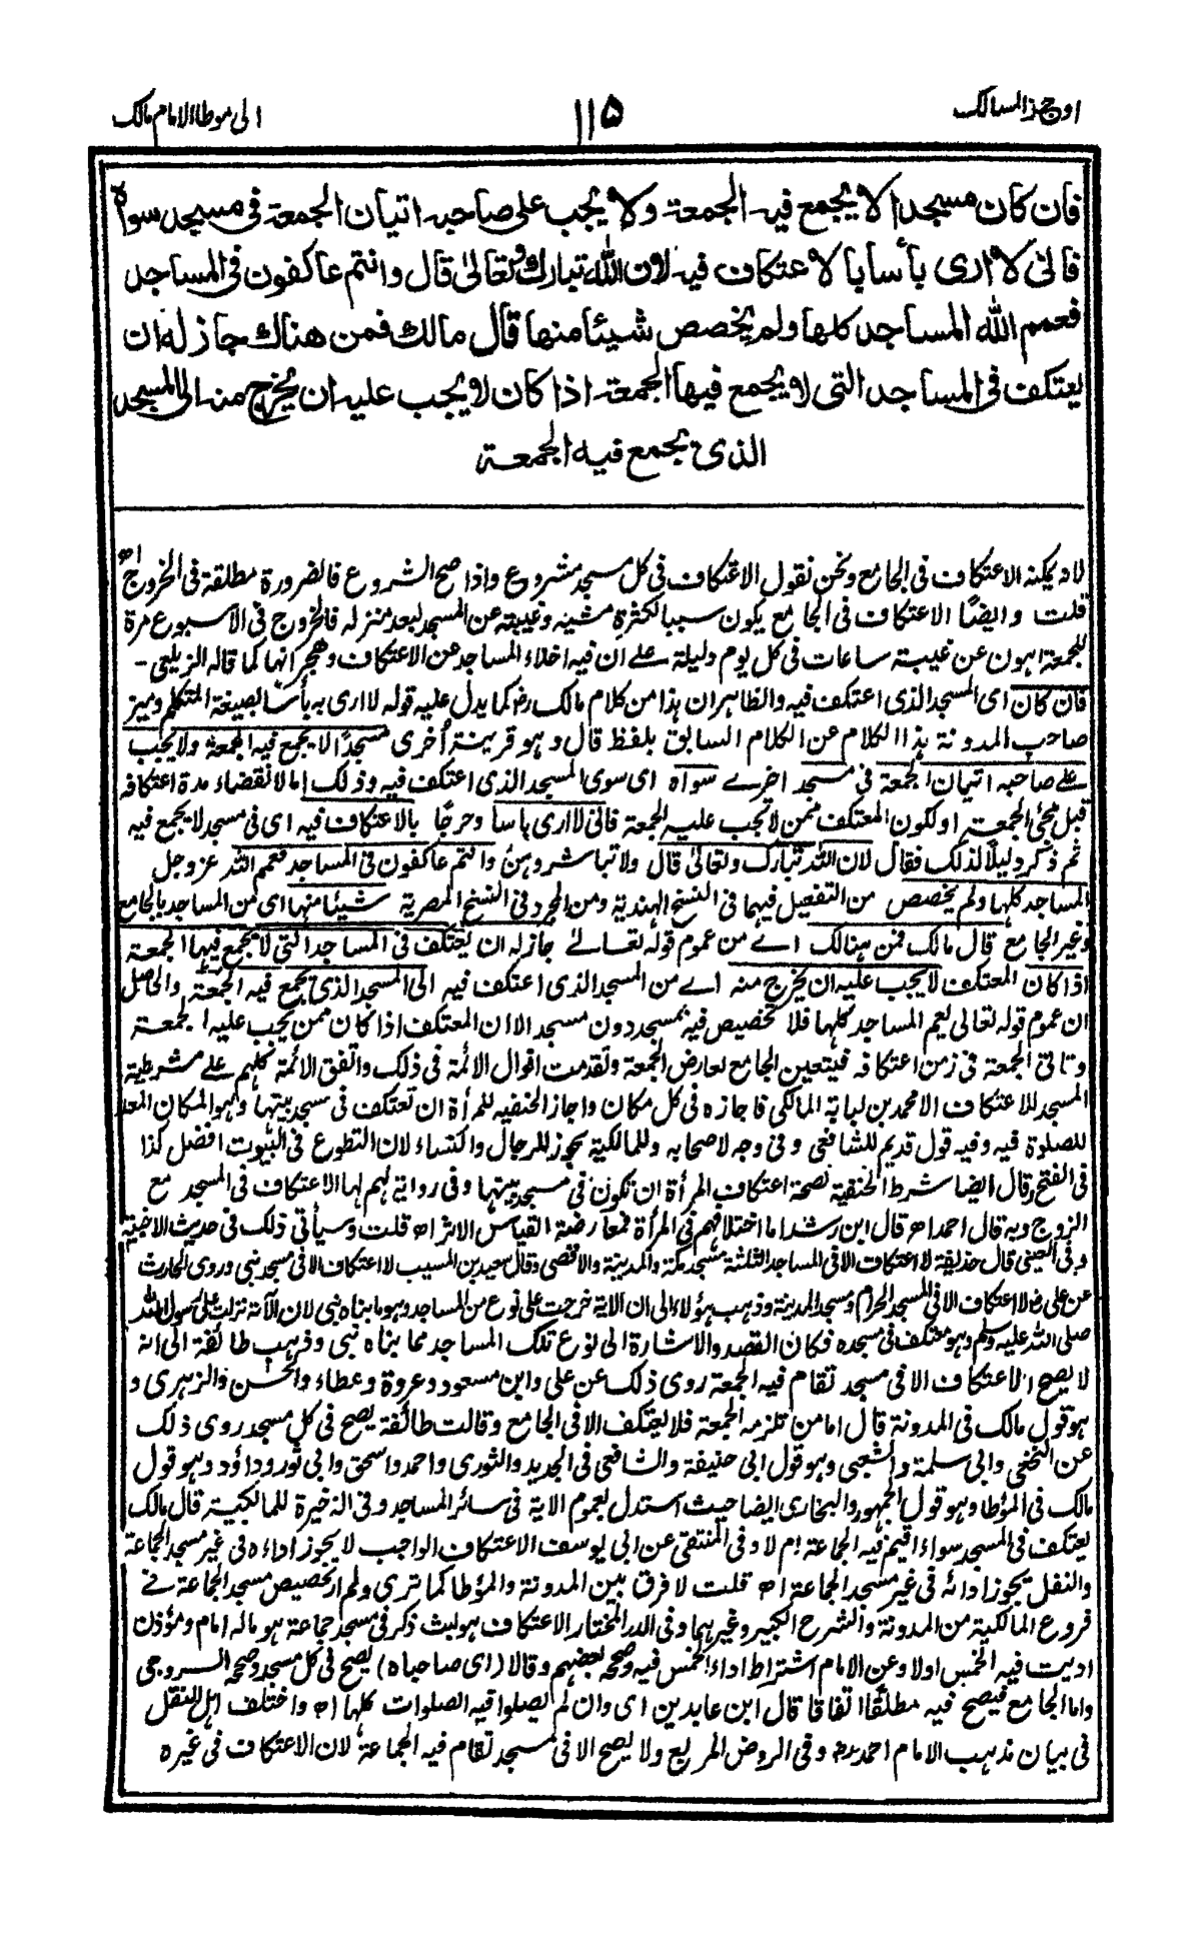 اوجز المسالك
١١٥
الى موطا الامام مالك
فان كان مسجدا لا يجمع فيه الجمعة ولا يجب على صاحبه اتيان الجمعة فى مسجد سواه
فانى لا ارى بأسا بالاعتكاف فيه لان الله تبارك وتعالىٰ قال وانتم عاكفون فى المساجد
فعمم الله المساجد كلها ولم يخصص شيئا منها قال مالك فمن هنالك جاز له ان
يعتكف فى المساجد التى لا يجمع فيها الجمعة اذا كان لا يجب عليه ان يخرج منه الى المسجد
الذى يجمع فيه الجمعة
لانه يمكنه الاعتكاف فى الجامع ونحن نقول الاعتكاف فى كل مسجد مشروع واذا صح الشروع فالضرورة مطلقة فى الخروج اھ
قلت وايضًا الاعتكاف فى الجامع يكون سببا لكثرة مشيه وغيبته عن المسجد لبعد منزله فالخروج فى الاسبوع مرة
للجمعة اهون عن غيبة ساعات فى كل يوم وليلة على ان فيه اخلاء المساجد عن الاعتكاف وهجرانها كما قاله الزيلعى -
فان كان اى المسجد الذى اعتكف فيه والظاهر ان هذا من كلام مالك رض كما يدل عليه قوله لا ارى به بأسًا بصيغة المتكلم وميز
صاحب المدونة هذا الكلام عن الكلام السابق بلفظ قال وهو قرينة أخرى مسجدًا لا يجمع فيه الجمعة ولا يجب
على صاحبه اتيان الجمعة فى مسجد اخر سواه اى سوى المسجد الذى اعتكف فيه وذلك اما لانقضاء مدة اعتكافه
قبل مجئ الجمعة او لكون المعتكف ممن لا تجب عليه الجمعة فانى لا ارى بأسا وحرجًا بالاعتكاف فيه اى فى مسجد لا يجمع فيه
ثم ذكر دليلًا لذلك فقال لان الله تبارك وتعالىٰ قال ولا تباشروهن وانتم عاكفون فى المساجد فعمم الله عز وجل
المساجد كلها ولم يخصص من التفعيل فيهما فى النسخ الهندية ومن المجرد فى النسخ المصرية شيئا منها اى من المساجد بالجامع
وغير الجامع قال مالك فمن هنالك اى من عموم قوله تعالىٰ جاز له ان يعتكف فى المساجد التى لا يجمع فيها الجمعة
اذا كان المعتكف لا يجب عليه ان يخرج منه اى من المسجد الذى اعتكف فيه الى المسجد الذى يجمع فيه الجمعة والحاصل
ان عموم قوله تعالى يعم المساجد كلها فلا تخصيص فيه بمسجد دون مسجد الا ان المعتكف اذا كان ممن يجب عليه الجمعة
وتاتى الجمعة فى زمن اعتكافه فيتعين الجامع لعارض الجمعة وتقدمت اقوال الائمة فى ذلك واتفق الائمة كلهم على مشرطية
المسجد للاعتكاف الا محمد بن لبابة المالكى فاجازه فى كل مكان واجاز الحنفيه للمرأة ان تعتكف فى مسجد بيتها وهو المكان المعد
للصلوة فيه وفيه قول قديم للشافعى وفى وجه لاصحابه وللمالكية يجوز للرجال والنساء لان التطوع فى البيوت افضل كذا
فى الفتح وقال ايضا شرط الحنفية لصحة اعتكاف المرأة ان تكون فى مسجد بيتها وفى رواية لهم لها الاعتكاف فى المسجد مع
الزوج وبه قال احمد اھ قال ابن رشد اما اختلافهم فى المرأة فمعارضة القياس الاثر اھ قلت وسيأتى ذلك فى حديث الاخبية
وفى العينى قال حذيفة لا اعتكاف الا فى المساجد الثلثة مسجد مكة والمدينة والاقصى وقال سعيد بن المسيب لا اعتكاف الا فى مسجد نبى وروى الحارث
عن على رض لا اعتكاف الا فى المسجد الحرام ومسجد المدينة وذهب هؤلاء الى ان الاية خرجت على نوع من المساجد وهو ما بناه نبى لان الآية نزلت على رسول الله
صلى الله عليه وسلم وهو معتكف فى مسجده فكان القصد والاشارة الى نوع تلك المساجد مما بناه نبى وذهب طائفة الى انه
لا يصح الاعتكاف الا فى مسجد تقام فيه الجمعة روى ذلك عن على وابن مسعود وعروة وعطاء والحسن والزهرى و
هو قول مالك فى المدونة قال اما من تلزمه الجمعة فلا يعتكف الا فى الجامع وقالت طائفة يصح فى كل مسجد روى ذلك
عن النخعى وابى سلمة والشعبى وهو قول ابى حنيفة والشافعى فى الجديد والثورى واحمد واسحق وابى ثور وداؤد وهو قول
مالك فى المؤطا وهو قول الجمهور والبخارى ايضا حيث استدل بعموم الاية فى سائر المساجد وفى الذخيرة للمالكية قال مالك
يعتكف فى المسجد سواء اقيم فيه الجماعة ام لا وفى المنتقى عن ابى يوسف الاعتكاف الواجب لا يجوز اداءه فى غير مسجد الجماعة
والنفل يجوز ادائه فى غير مسجد الجماعة اھ قلت لا فرق بين المدونة والمؤطا كما ترى ولم ار تخصيص مسجد الجماعة فى
فروع المالكية من المدونة والشرح الكبير وغيرهما وفى الدر المختار الاعتكاف هو لبث ذكر فى مسجد جماعة هو ماله امام ومؤذن
اديت فيه الخمس اولا وعن الامام اشتراط اداء الخمس فيه وصححه بعضهم وقالا (اى صاحباه) يصح فى كل مسجد وصححه السروجى
واما الجامع فيصح فيه مطلقًا اتفاقا قال ابن عابدين اى وان لم يصلوا فيه الصلوات كلها اھ واختلف اهل النقل
فى بيان مذهب الامام احمد رح وفى الروض المربع ولا يصح الا فى مسجد تقام فيه الجماعة لان الاعتكاف فى غيره